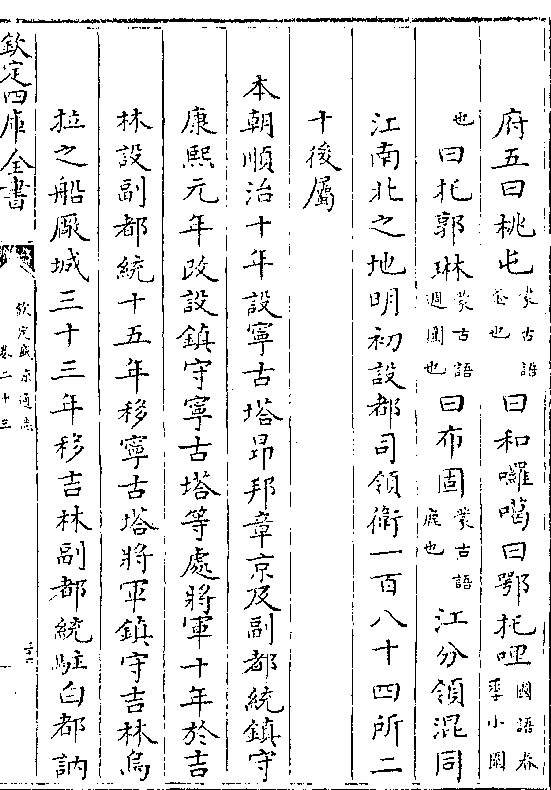 府五曰桃屯蒙古語壺也曰和囉噶曰鄂托哩國語春季小圍
也曰托郭琳蒙古語週圍也曰布固蒙古語鹿也江分領混同
江南北之地明初設都司領衛一百八十四所二
十後屬
本朝順治十年設寧古塔昂邦章京及副都統鎮守
康熙元年改設鎮守寧古塔等處將軍十年於吉
林設副都統十五年移寧古塔將軍鎮守吉林烏
拉之船厰城三十三年移吉林副都統駐白都訥
欽定四庫全書
欽定盛京通志
卷二十三